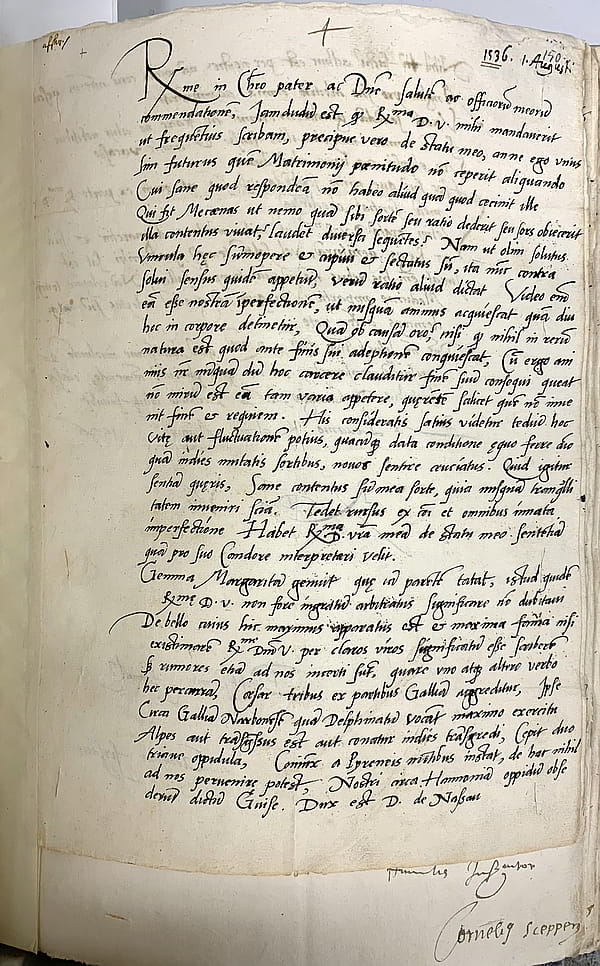 1536. 1. August.
Rme in Chro pater ac Dne salutē ac officiorū meorū
commendatione, Jamdudū est q Rma D. V. mihi mandauerit
ut frequētius scribam, precipue vero de statu meo, anne ego unus
sim futurus quē Matrimonij pœnitudo nō ceperit aliquando
Cui sane quod respondeā nō habeo aliud quā quod cecinit ille
Qui fit Mecœnas ut nemo quā sibi sortē seu ratio dederit seu sors obiecerit
illa contentus viuat, laudet diuersa sequētes? Nam ut olim solutus
vincula hęc sūmopere & cupiui & sectatus sū, ita nūc contra
solui sensus quidē appetit, verū ratio aliud dictat Video enī
eā esse nostrā īperfectionē, ut nusquā animus acquiescat quā diu
hoc in corpore detinetur, Quā ob causā oro? nisi q nihil in rerū
natura est quod ante finis sui adeptionē conquiescat, Cū ergo ani
mus in nūquā dū hoc carcere clauditur finē suū consequi queat
nō mirū est eā tam varia appetere, quęrētē scilicet que nō inue
nit finē & requiem. His consideratis satius videtur tediū hoc
vitę aut fluctuationē potius, quacūq data conditione ęquo ferre aīo
quā indies mutatis sortibus, nouos sentire cruciatus. Quid igitur
sentiā quęris, Sane contentus sū mea sorte, quia nusquā tranquilli
tatem inueniri sciā. Tedet rursus ex cōi et omnibus innata
imperfectione Habet Rma D. vrā meā de statu meo sentētiā
quā pro suo Candore interpretari velit.
Gemma Margaritā genuit quę iā parētē tatat, istud quidē
Rmę D. V. non fore ingratū arbitratus significare nō dubitaui
De bello cuius hic maximus apparatus est & maxima fama nisi
existimarē Rme Dnī V. per claros viros significatū esse scriberē
Sz rumores etiā ad nos incerti sūt, quare vno atq altero verbo
hec percurrā, Cæsar tribus ex partibus Galliā aggreditur, Ipse
Circa Galliā Narbonēsē quā Delphinatū vocāt maximo exercitu
Alpes aut trāsgressus est aut conatur indies trāsgredi, Cepit duo
triaue oppidula, a Pyreneis mōtibus instat, de hoc nihil
ad nos peruenire potest, Nostri circa Hannoniā oppidū obse
derūt dictū Guise. Dux est D. de Nassau
Cornelius Scepperus